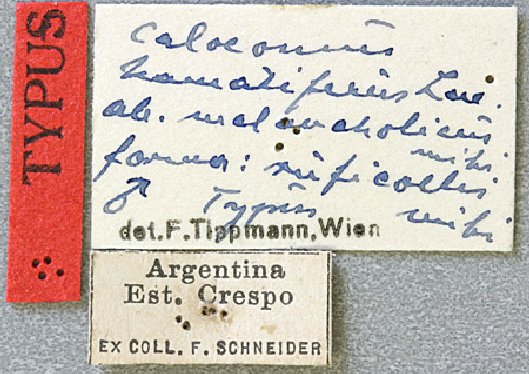 TYPUS
Calocomus
hamatiferus Lac.
ab. melancholicus
mihi
forma: ruficollis
♂ Typus mihi
det. F. Tippmann, Wien
Argentina
Est. Crespo
EX COLL. F. SCHNEIDER